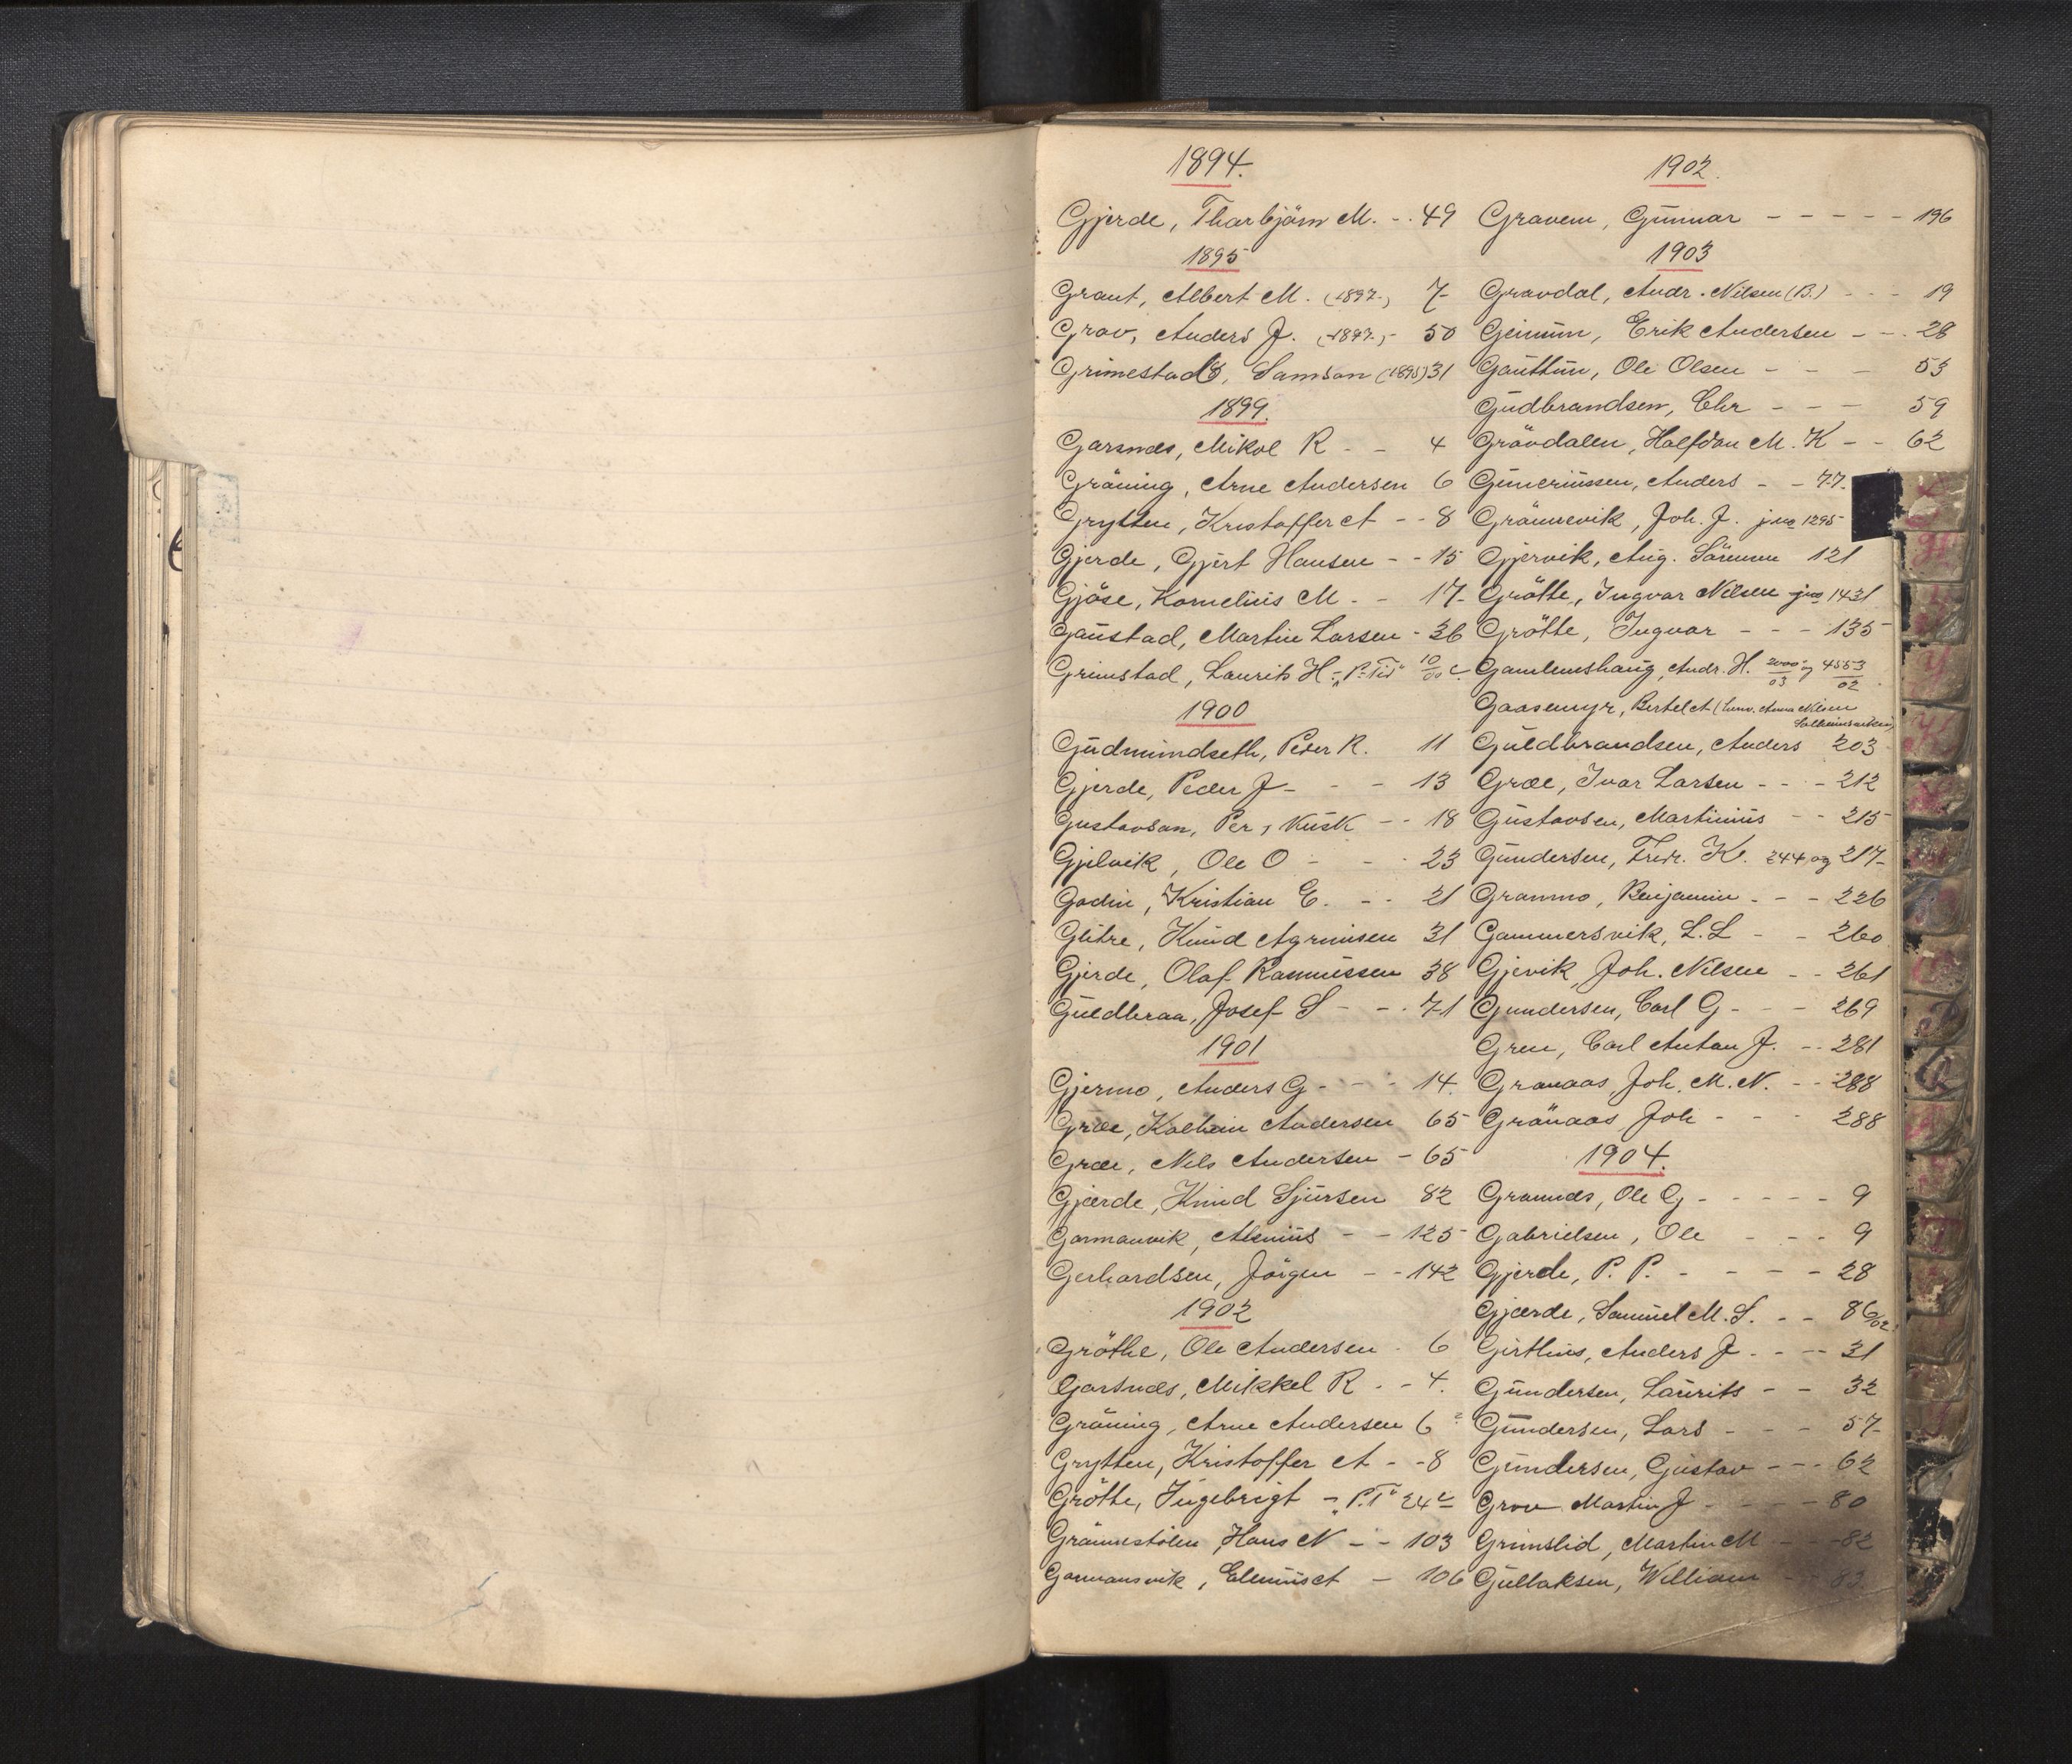 1894.
Gjerde, Thorbjörn M. - - 49
1895
Graut, Albert M. (1897.) 7
Grov, Anders J. (1897.) - 50
Grimestad, Samson (1895) 31
1899.
Garsnes, Mikal R - - 4
Gröning, Arne Andersen 6
Grytten, Kristoffer A - - 8
Gjerde, Gjert Hansen - - 15
Gjöse, Kornelius M - - 17
Gaustad, Martin Larsen - 36
Grimstad, Laurits H - "P-Tid" 10/00 c.
1900
Gudmundseth, Peder R. 11
Gjerde, Peder J - - - 13
Gustavson, Per, Kusk - - 18
Gjelvik, Ole O - - - 23
Godin, Kristian E. - - 21
Glitre, Knud Agrimsen 31
Gjerde, Olaf Rasmussen 38
Guldbraa, Josef S - - - 71
1901
Gjermo, Anders G - - - 14.
Græe, Andersen 65
Græe, Nils Andersen - 65
Gjærde, Knud Sjursen 82
Gormanvik, - - 125
Gerhardsen, Jörgen - - 142
1902
Gröthe, Ole Andersen - 6
Garsnes, Mikkel R - - 4.
Gröning, Arne Andersen 6
Grytten, Kristoffer A - - 8
Grötte, Ingebrigt - "P.T" 24
Grönnestölen, Hans N - - 103
Gormansvik, - 106
1902.
Gravem, Gunnar - - - - - 196
1903
Gravdal, Andr. Nilsen (B.) - - - 19
Geimun, Erik Andersen - - - 28
Gauttun, Ole Olsen - - - 53
Gudbrandsen, Chr - - - 59
Grövdalen, Halfdan M. K - - 62
Guneriussen, Anders - - 77.
Grönnevik, Joh. J. jno 1295
Gjervik, Aug. 121
Grötte, Ingvar Nilsen jno 1431
Grötte, Ingvar - - - 135
Gamlemshaug, Andr. H. 2000/03 og 4553/02
Gaasemyr, Bertel A (
Guldbrandsen, Anders 203
Græe, Ivar Larsen - - - 212
Gustavsen, Martinius - - 215
Gundersen, Fredr. K. 244 og 217
Granmo, Benjamin - - - 226
Gammersvik, L. L - - 260
Gjevik, Joh. Nilsen - - 261
Gundersen, Carl G - - - 269
Gren, Carl Anton J. - - 281
Granaas, Joh. M. N. - - 288
Grönaas Joh - - - 288
1904.
Grannes, Ole G - - - - - 9
Gabrielsen, Ole - - - 9
Gjerde, P. P. - - - - - 28
Gjærde, Samuel M. S. - - 86/02
Anders J - - - 31
Gundersen, Laurits - - 32
Gundersen, Lars - - - 57
Gundersen, Gustav - - - 62
Grov Martin J - - - - 80
Grimslid, Martin M - - - 82
Gullaksen, William - - 83